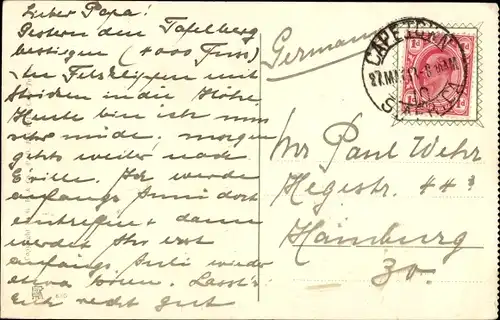 Lieber Papa!
Gestern den Tafelberg
bestiegen (4000 Fuss)
In Felsklippen mit
Stricken in die Höhe
Heute bin ich nun
sehr müde. morgen
gehts weiter nach
E'ville. Ich werde
anfangs Juni dort
eintreffen & dann
werdet Ihr erst
anfangs Juli wieder
etwas hören. Lasst's
Euch recht gut
Germany
CAPE TOWN
Mr Paul Wehr
Hegestr. 44
Hamburg
20.